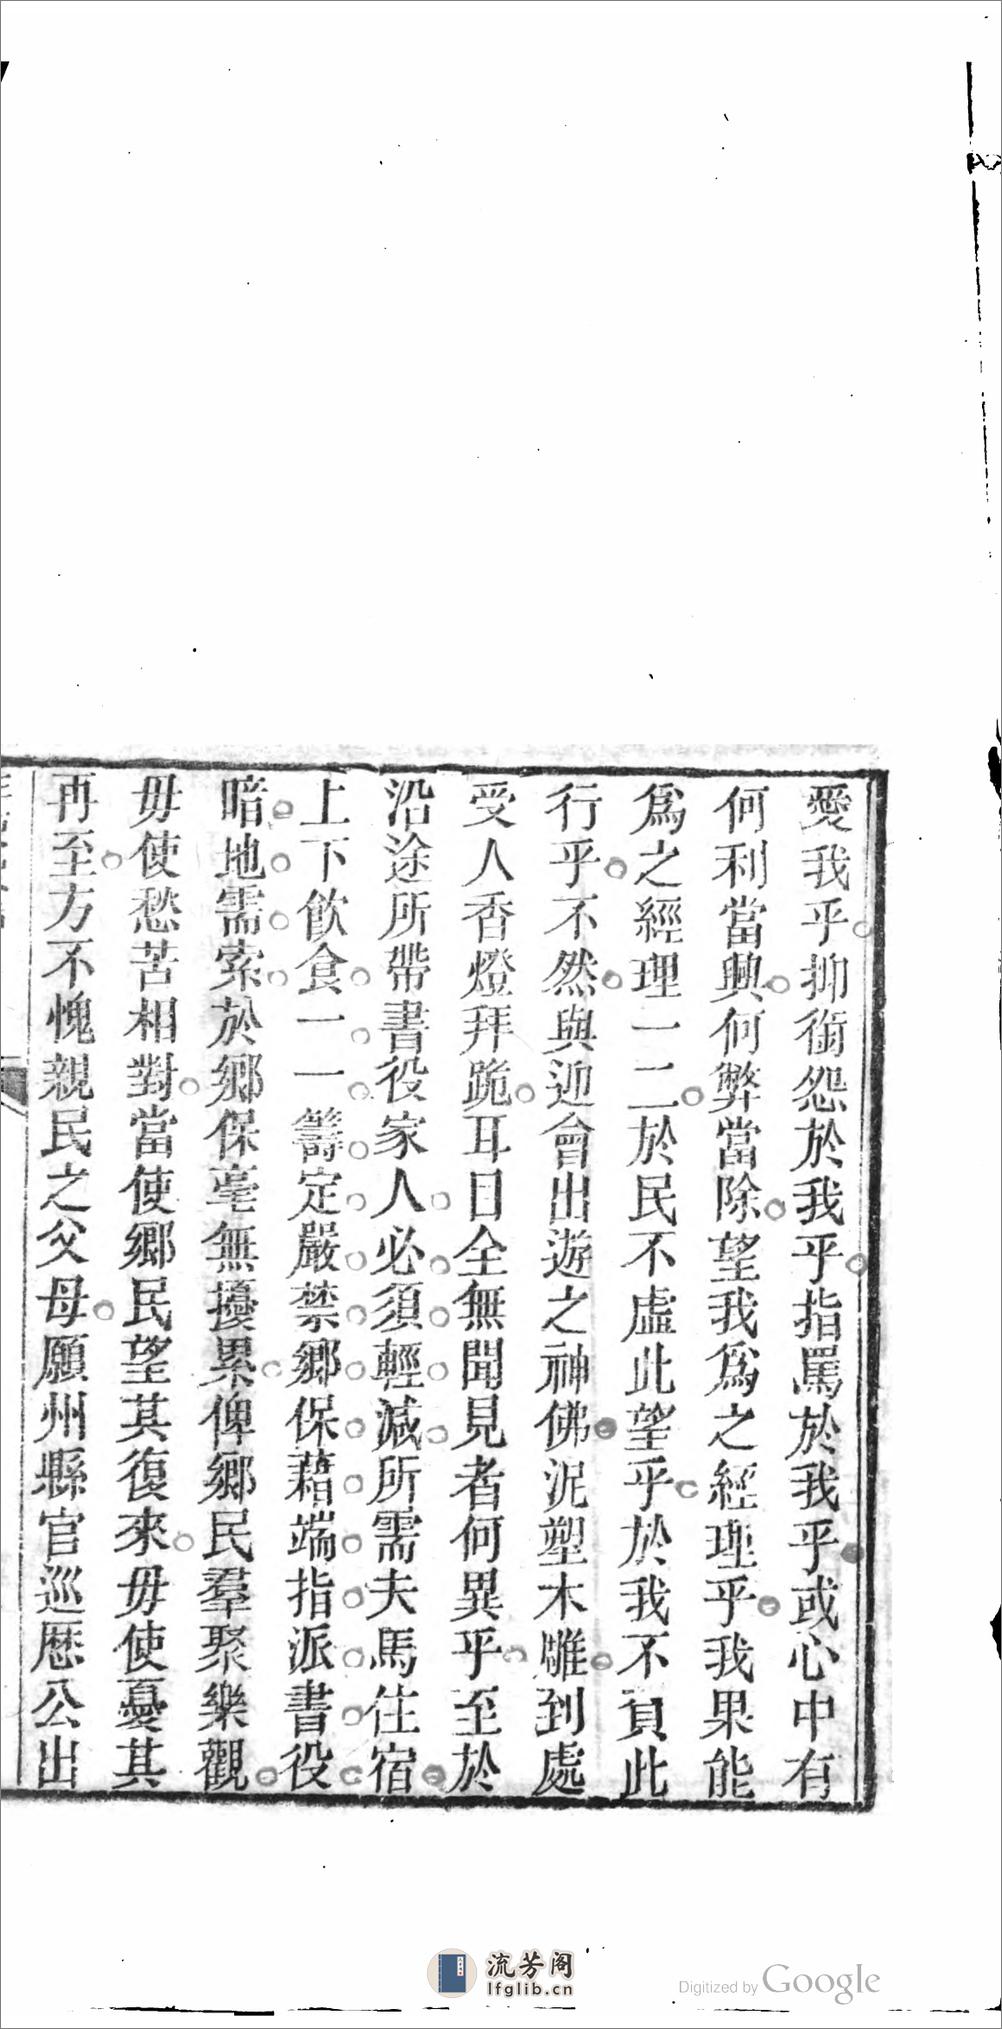 愛我乎抑銜怨於我乎指罵於我乎或心中有
何利當興何弊當除望我爲之經理乎我果能
爲之經理一二於民不虛此望乎於我不負此
行乎不然與迎會出遊之神佛泥塑木雕到處
受人香燈拜跪耳目全無聞見者何異乎至於
沿途所帶書役家人必須輕減所需夫馬住宿
上下飲食一一籌定嚴禁鄉保藉端指派書役
暗地需索於鄉保毫無擾累俾鄉民羣聚樂觀
毋使愁苦相對當使鄉民望其復來毋使憂其
再至方不愧親民之父母願州縣官巡歷公出
流芳阁
lfglib.cn
Digitized by Google